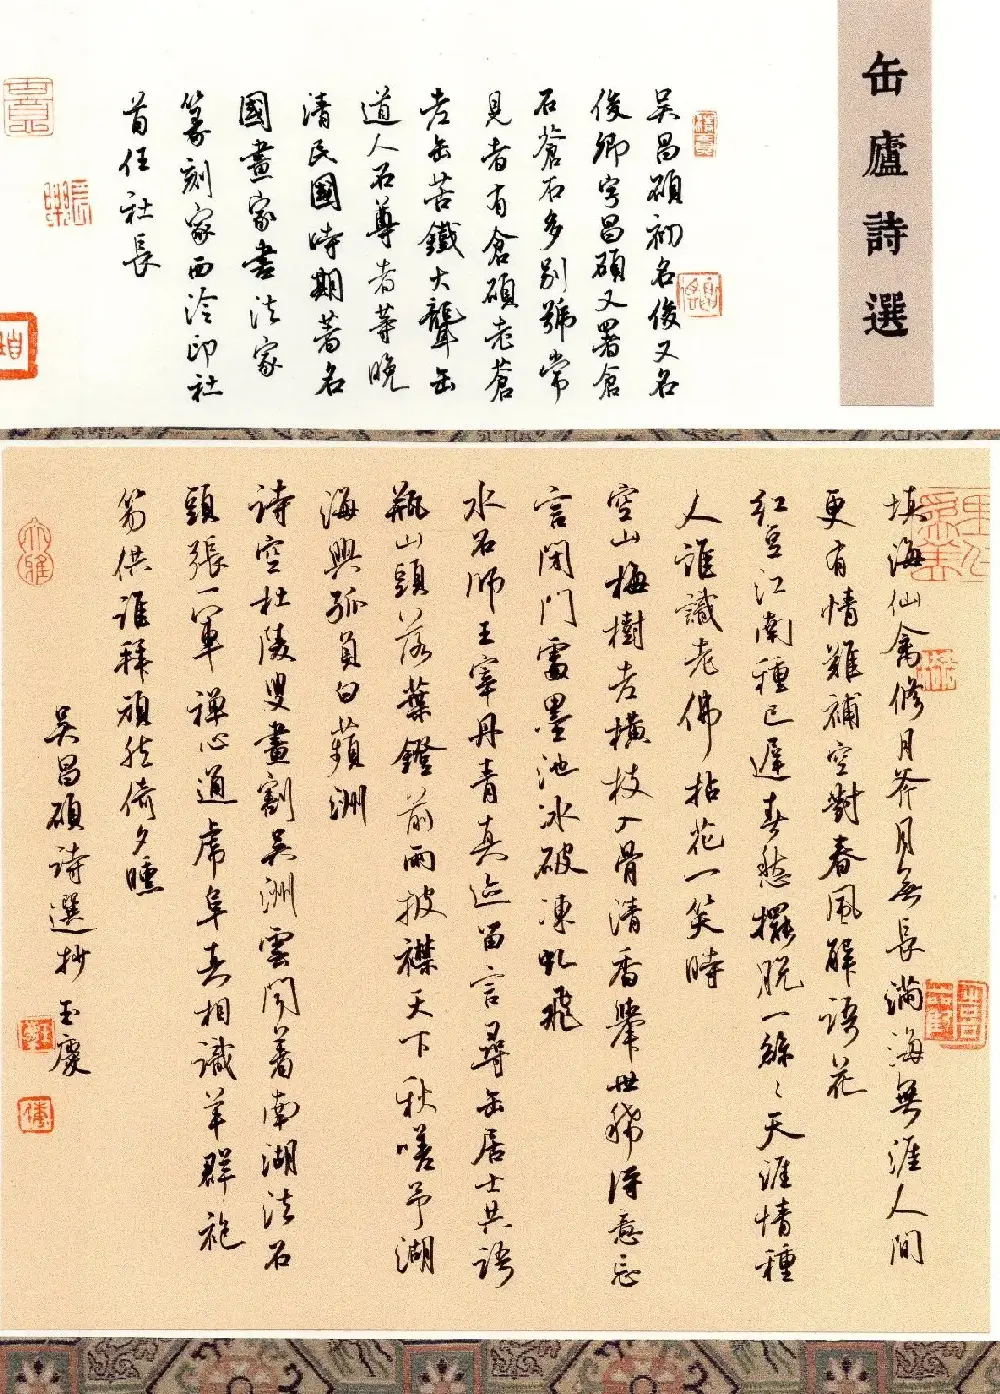 缶廬詩選
吳昌碩初名俊又名
俊卿字昌碩又署倉
石蒼石多別號常
見者有倉碩老蒼
老缶苦鐵大聾缶
道人石尊者等晚
清民國時期著名
國畫家書法家
篆刻家西泠印社
首任社長
填海仙禽修月斧月無長滿海無涯人間
更有情難補空對春風解語花
紅豆江南種已遲春愁擺脫一絲絲天涯情種
人誰識老佛拈花一笑時
空山梅樹老橫枝入骨清香舉世稀得意忘
言閉門處墨池冰破凍虬飛
水石師王宰丹青真跡留言尋缶居士共語
瓶山頭落葉鐙前雨披襟天下秋嗟予湖
海興孤負白蘋洲
詩空杜陵叟畫割吳洲雲閣著南湖法石
頭張一軍禪心通虎阜真相識羊群袍
笏供誰拜頑然倚夕曛
吳昌碩詩選抄 玉慶